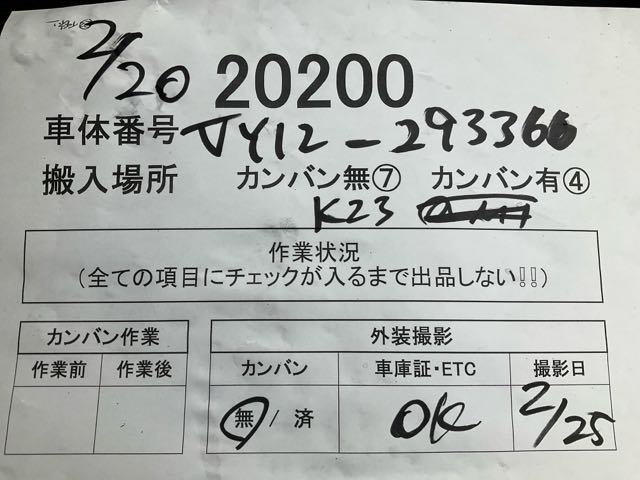 2/20 20200
車体番号 VY12-293366
搬入場所 カンバン無⑦ カンバン有④
K23
作業状況
(全ての項目にチェックが入るまで出品しない!!)
カンバン作業
作業前 作業後
外装撮影
カンバン 車庫証・ETC 撮影日
無 / 済 OK 2/25